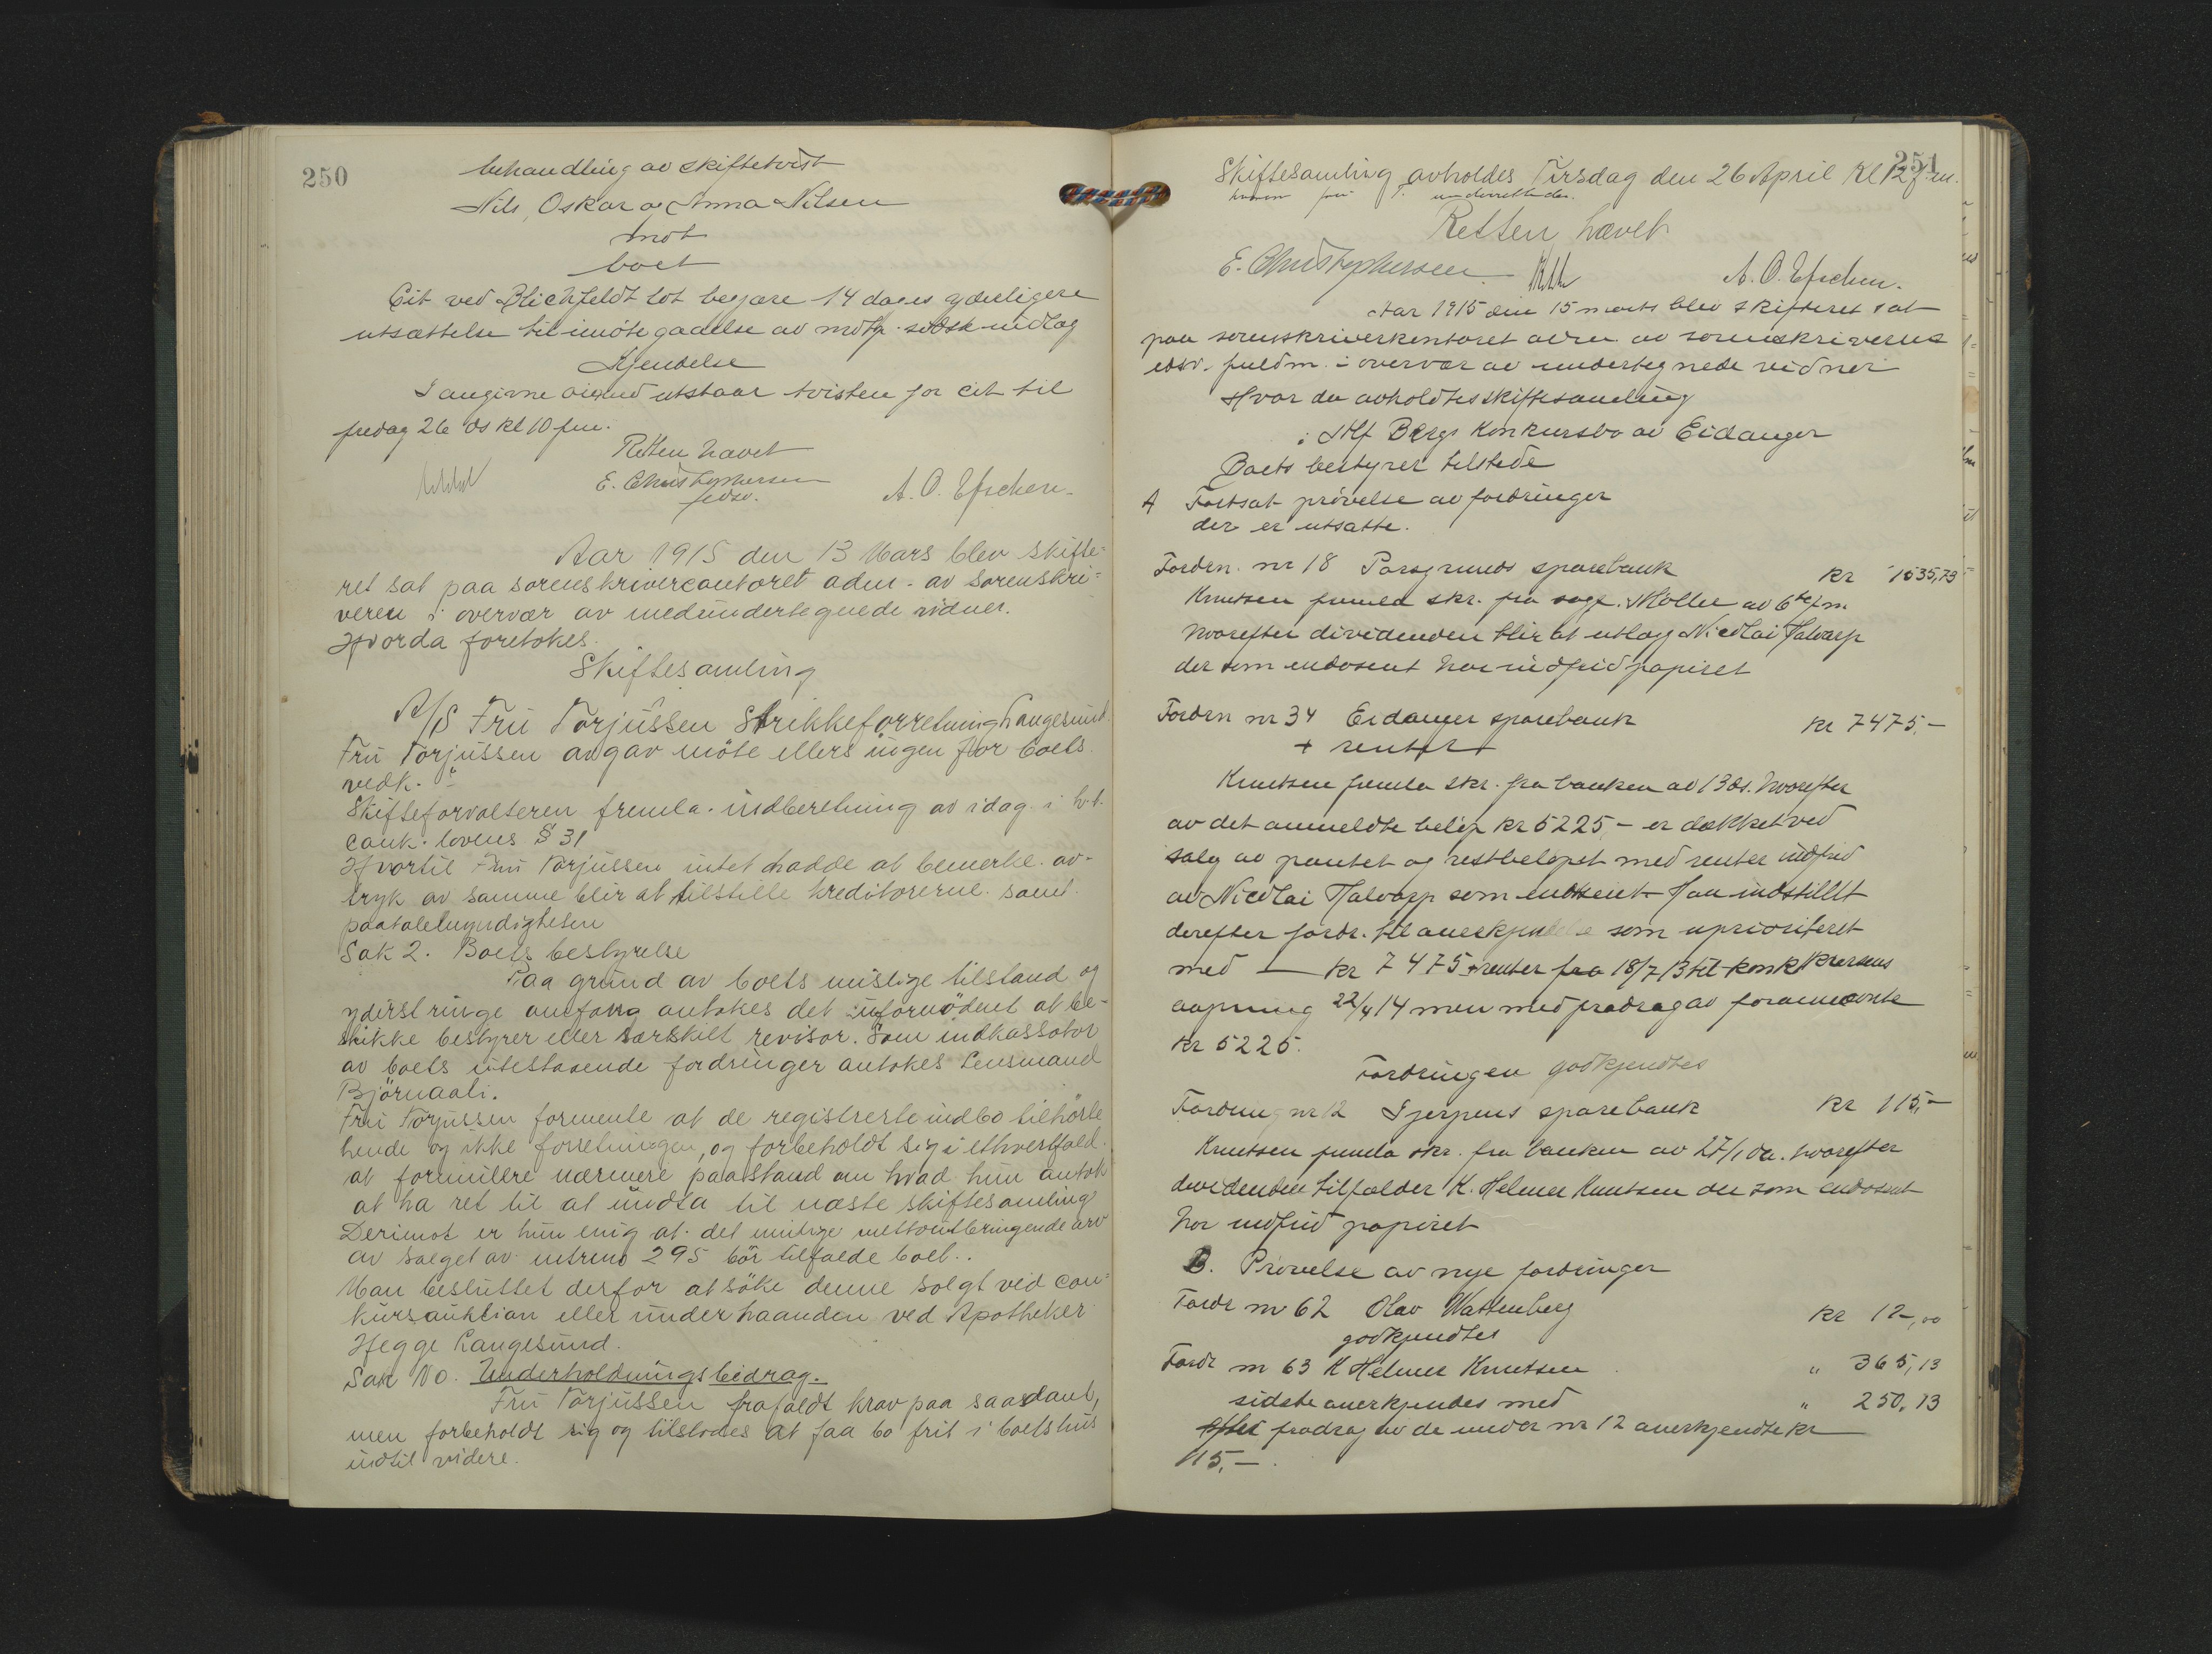 250
behandling av skiftetvist
Nils, Oskar og Anna Nilsen
mot
boet
Cit ved Blichfeldt lot begjære 14 dages yderligere
utsættelse til imøtegaaelse av motp.
Kjendelse
I angivne øiemed utstaar tvisten for cit til
fredag 26 ds kl 10 fm.
Retten hævet
E. Christophersen
A. O. Efschen.
Aar 1915 den 13 Mars blev skifte=
ret sat paa sorenskrivercontoret adm. av sorenskri=
veren i overvær av medundertegnede vidner.
Hvorda foretokes
Skiftesamling
A/S Fru Torjussen Strikkeforretning Langesund.
Fru Torjussen avgav møte ellers ingen for boets
vedk.
Skifteforvalteren fremla indberetning av idag i h.t.
conk. lovens § 31
Hvortil Fru Torjussen intet hadde at bemerke. av-
tryk av samme blir at tilstille kreditorerne samt
paatalemyndigheten
Sak 2. Boets bestyrelse
Paa grund av boets mislige tilstand og
yderst ringe omfang antokes det ufornødent at be-
skikke bestyrer eller særskilt revisor. Som indkassator
av boets utestaaende fordringer antokes Lensmand
Björnaali.
Fru Torjussen formente at de registrerte indbo tilhörte
hende og ikke forretningen, og forbeholdt sig i ethvertfald
at formulere nærmere paastand om hvad hun antok
at ha ret til at undta til næste skiftesamling
Derimot er hun enig at det mulige nettoutbringende
av salget av 295 bör tilfalde boet..
Man besluttet derfor at söke denne solgt ved con=
kursauktion eller underhaanden ved Apotheker
Hegge Langesund.
Sak No. Underholdningsbidrag.
Fru Torjussen frafaldt krav paa saadant,
men forbeholdt sig og tilstodes at faa bo frit i boets hus
indtil videre.
251
Skiftesamling avholdes Tirsdag den 26 April Kl 12 fm.
hvorom fru T. underrettedes.
Retten hævet
E. Christophersen
A. O. Efschen.
Aar 1915 den 15 marts blev skifteret sat
paa sorenskriverkontoret adm av sorenskriverens
edsv. fuldm. i overvær av undertegnede vidner
Hvor da avholdtes skiftesamling
i Alf Bergs Konkursbo av Eidanger
Boets bestyrer tilstede
A Fortsat prøvelse av fordringer
der er utsatte.
Fordrn. nr 18 Porsgrunds sparebank kr 1535,73
Knutsen fremla skr. fra sagf. Møller av 6te f.m.
hvorefter dividenden blir at utlægg Nicolai Halvarp
der som endosent har indfrid papiret
Fordrn nr 34 Eidanger sparebank kr 7475,-
+ renter
Knutsen fremla skr. fra banken av 13 ds. hvorefter
av det anmeldte beløp kr 5225,- er dækket ved
salg av pantet og restbeløpet med renter indfrid
av Nicolai Halvarp som endosent. Han indstillt
derefter fordr. til anerkjendelse som uprioritert
med — kr 7475 + renter fra 18/7 13 til konkkursens
aapning 22/4 14 men med fradrag av forannævnte
kr 5225.
Fordringen godkjendtes
Fordring nr 12 Gjerpens sparebank kr 115,-
Knutsen fremla skr. fra banken av 27/1 da. hvorefter
dividenden tilfalder K. Helmer Knutsen der som endosent
har indfrid papiret
B. Prøvelse av nye fordringer
Fordr nr 62 Olav Wattenberg kr 12,00
godkjendtes
Fordr nr 63 K Helmer Knutsen " 365,13
sidste anerkjendes med " 250,13
efter fradrag av de under nr 12 anerkjendte kr
115,-